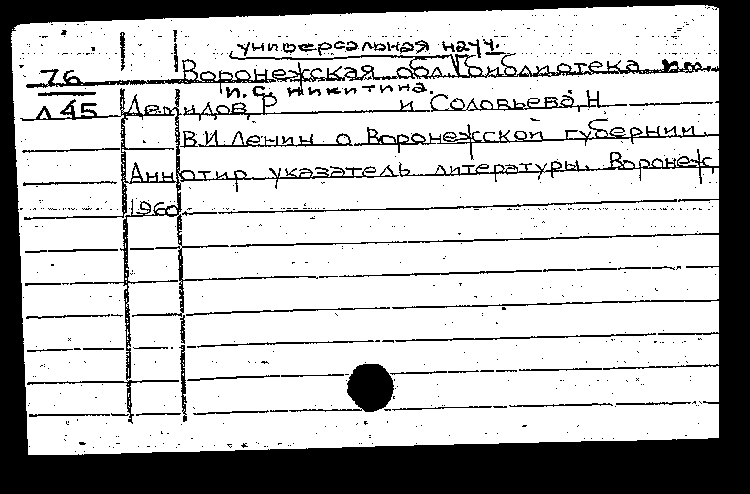 универсальная науч.
76 Воронежская обл. библиотека им.
И.С. Никитина.
Л 45 Демидов, Р и Соловьева, Н
В.И Ленин о Воронежской губернии.
Аннотир указатель литературы. Воронеж,
1960